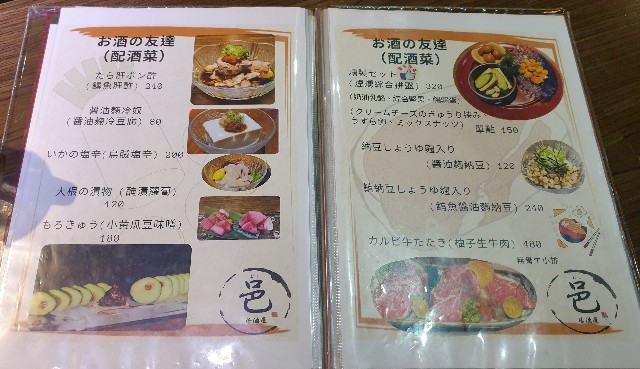 お酒の友達
(配酒菜)
たら肝ポン酢
(鱈魚肝酢) 240
醤油麹冷奴
(醬油麴冷豆腐) 80
いかの塩辛(烏賊塩辛) 200
大根の漬物 (醃漬蘿蔔)
120
もろきゅう(小黄瓜豆味噌)
180
邑
居酒屋
お酒の友達
(配酒菜)
燻製セット
(煙燻綜合拼盤) 320
(クリームチーズのきゅうり
うずら卵、ミックスナッツ)
單點 150
納豆しょうゆ麹入り
(醬油麴納豆) 120
しょうゆ麹入り
(鱈魚醬油麴納豆) 240
カルビ牛たたき(柚子生牛肉) 480
無骨牛小排
邑
居酒屋